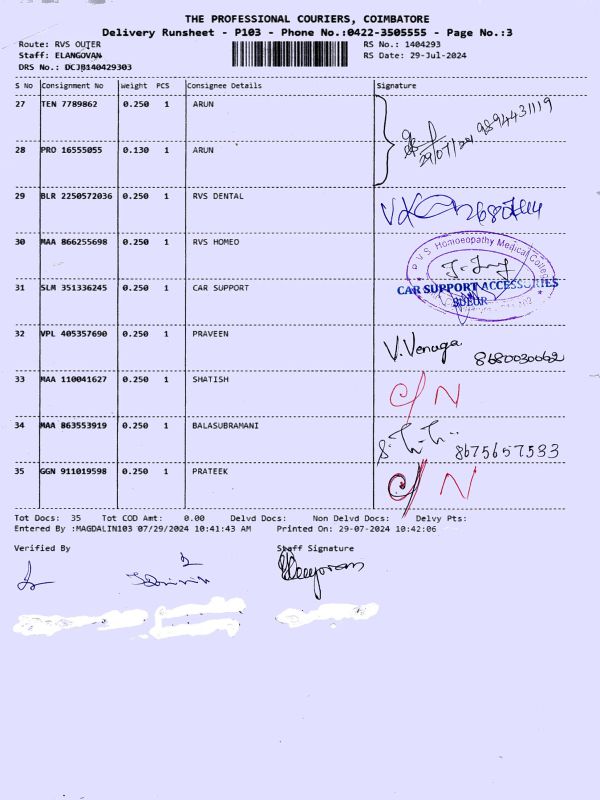 THE PROFESSIONAL COURIERS, COIMBATORE
Delivery Runsheet - P103 - Phone No.:0422-3505555 - Page No.:3
Route: RVS OUTER RS No.: 1404293
Staff: ELANGOVAN RS Date: 29-Jul-2024
DRS No.: DCJB140429303
S No Consignment No Weight PCS Consignee Details Signature
27 TEN 7789862 0.250 1 ARUN
29/07/24 9894431119
28 PRO 16555055 0.130 1 ARUN
29 BLR 2250572036 0.250 1 RVS DENTAL
30 MAA 866255698 0.250 1 RVS HOMEO
RVS Homoeopathy Medical College
31 SLM 351336245 0.250 1 CAR SUPPORT
CAR SUPPORT ACCESSORIES
32 VPL 405357690 0.250 1 PRAVEEN
V. Venuga 8680030062
33 MAA 110041627 0.250 1 SHATISH
C/N
34 MAA 863553919 0.250 1 BALASUBRAMANI
8675657533
35 GGN 911019598 0.250 1 PRATEEK
C/N
Tot Docs: 35 Tot COD Amt: 0.00 Delvd Docs: Non Delvd Docs: Delvy Pts:
Entered By :MAGDALIN103 07/29/2024 10:41:43 AM Printed On: 29-07-2024 10:42:06
Verified By Staff Signature